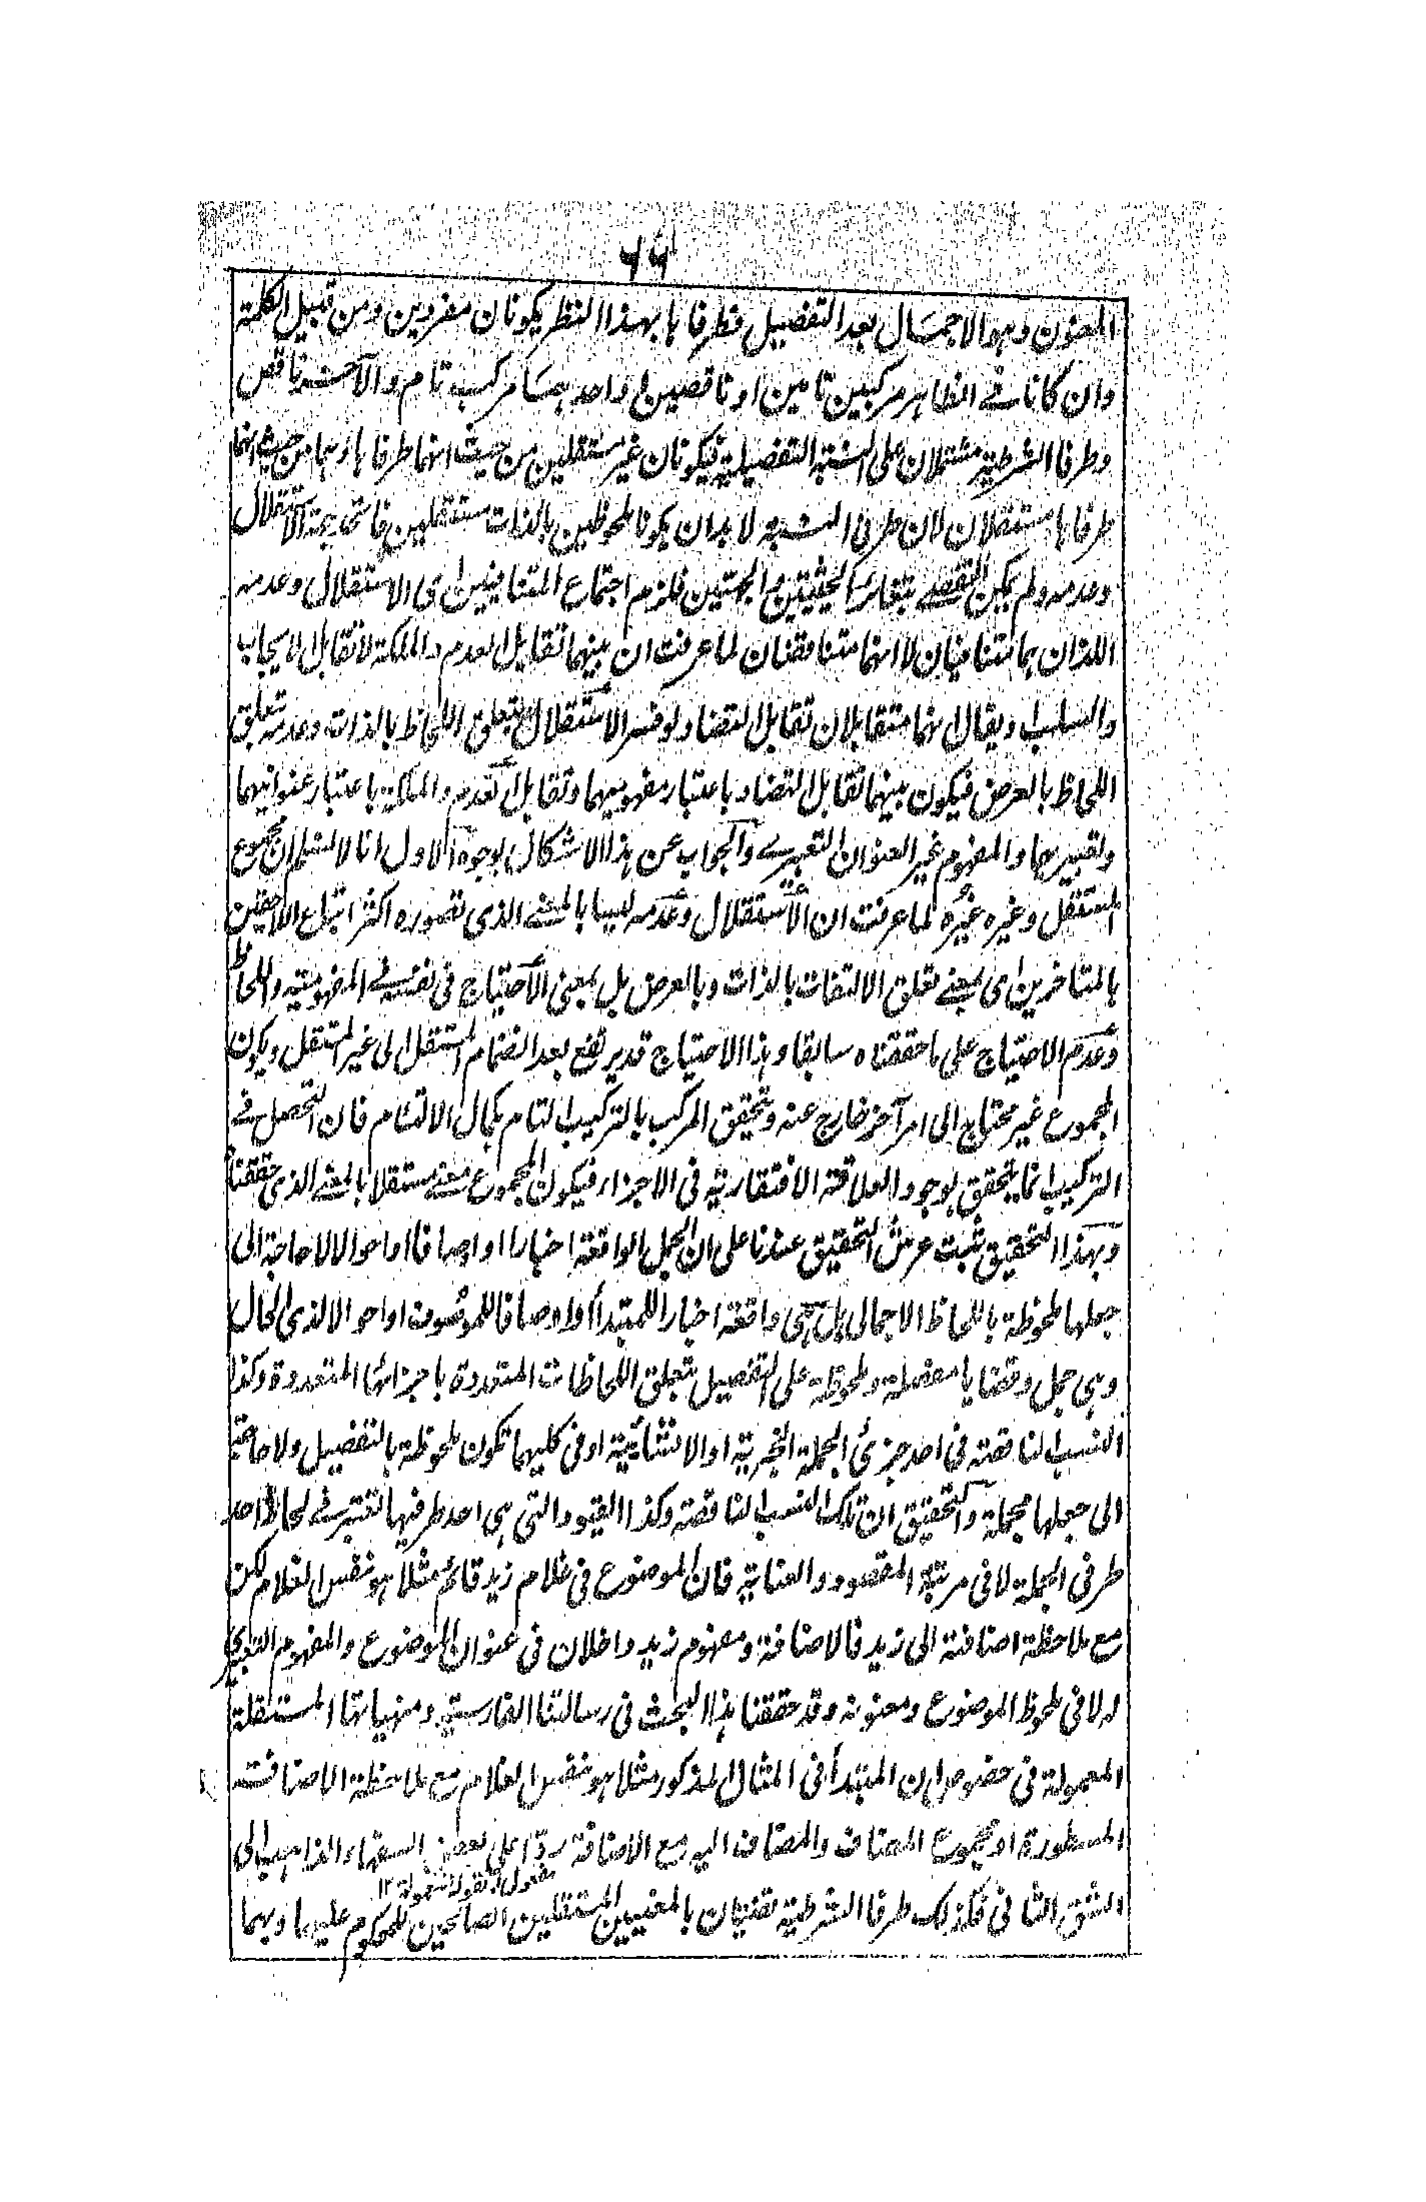 ٦٦
المعنون وهو الاجمال بعد التفصيل فطرفاها بهذا النظر يكونان مفردين ومن قبيل الكلمة
وان كانا في الظاهر مركبين تامين او ناقصين او واحد هما مركب تام والآخر ناقص
وطرفا الشرطية مشتملان على النسبة التفصيلية فيكونان غير مستقلين من حيث انهما طرفاها وهما من حيث انهما
طرفاها مستقلان لان طرفى النسبة لا بد ان يكونا ملحوظين بالذات مستقلين فاتحد جهة الاستقلال
وعدمه ولم يكن التفصي بتغائر الحيثيتين والجهتين فلزم اجتماع المتنافيين اى الاستقلال وعدمه
اللذان هما متنافيان لا انهما متناقضان لما عرفت ان بينهما تقابل العدم والملكة لا تقابل الايجاب
والسلب ويقال انهما متقابلان تقابل التضاد لو فسر الاستقلال بتعلق اللحاظ بالذات وعدمه بتعلق
اللحاظ بالعرض فيكون بينهما تقابل التضاد باعتبار مفهوميهما وتقابل العدم والملكة باعتبار عنوانيهما
وتعبيرهما والمفهوم غير العنوان التعبيرے والجواب عن هذا الاشكال بوجوه الاول انا لا نسلم ان مجموع
المستقل وغيره غيره لما عرفت ان الاستقلال وعدمه ليسا بالمعنے الذى تصوره اكثر اتباع اللاحقين
بالمتاخرين اى بمعنے تعلق الالتفات بالذات وبالعرض بل بمعنى الاحتياج فى نفسه فے المفهومية واللحاظ
وعدم الاحتياج على ما حققناه سابقا وهذا الاحتياج قد يرتفع بعد انضمام المستقل الى غير المستقل ويكون
المجموع غير محتاج الى امر آخر خارج عنه وتحقق المركب بالتركيب التام بكمال الالتئام فان التحصل فے
التركيب انما يتحقق بوجود العلاقة الافتقارية فى الاجزاء فيكون المجموع معنے مستقلا بالمعنے الذى حققناه
وبهذا التحقيق ثبت عرش التحقيق عندنا على ان الجمل الواقعة اخبارا او اوصافا او احوالا لا حاجة الى
جعلها ملحوظة باللحاظ الاجمالى بل هى واقعة اخبارا للمبتدأ او اوصافا للموصوف او احوالا لذى الحال
وهى جمل وقضايا مفصلة وملحوظة على التفصيل بتعلق اللحاظات المتعددة باجزائها المتعددة وكذا
النسب الناقصة فى احد جزئى الجملة الخبرية او الانشائية او فى كليهما تكون ملحوظة بالتفصيل ولا حاجة
الى جعلها مجملة والتحقيق ان تلك النسب الناقصة وكذا القيود التى هى احد طرفيها تعتبر فے لحاظ احد
طرفى الجملة لا فى مرتبة المقصود والعناية فان الموضوع فى غلام زيد قائم مثلا هو نفس الغلام لكن
مع ملاحظة اضافته الى زيد فالاضافة ومفهوم زيد داخلان فى عنوان الموضوع والمفهوم التعبيرى
له لا فى ملحوظ الموضوع ومعنونه وقد حققنا هذا البحث فى رسالتنا الفارسية ومنهياتها المستقلة
المعمولة فى خصوص ان المبتدأ فى المثال المذكور مثلا هو نفس الغلام مع ملاحظة الاضافة
المسطورة او مجموع المضاف والمضاف اليه مع الاضافة ردا على بعض السفهاء الذاهب الى
مفعول له لقوله معمولة ١٢
الشق الثانى فكذلك طرفا الشرطية قضيتان بالمعنيين المستقلين الصالحين للمحكوم عليها وبهما